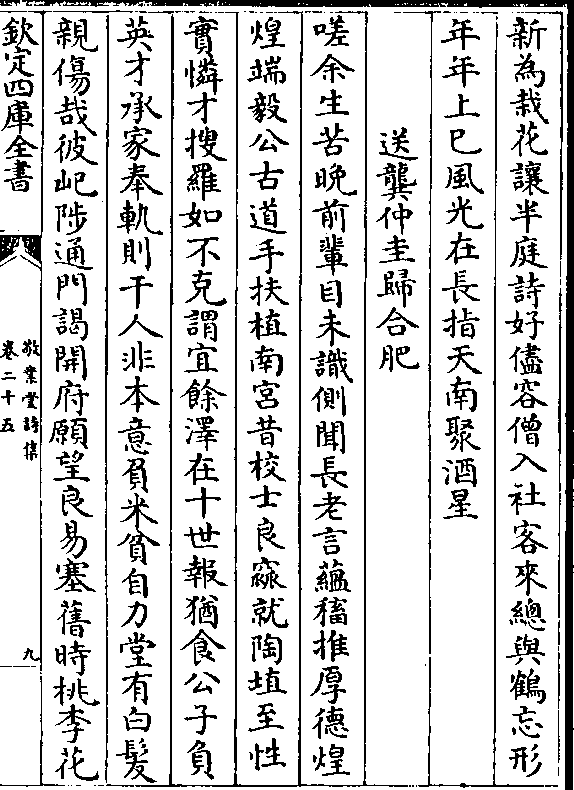 新為栽花讓半庭詩好儘容僧入社客來總與鶴忘形
年年上巳風光在長指天南聚酒星
送龔仲圭歸合肥
嗟余生苦晚前輩目未識側聞長老言蘊穡推厚德煌
煌端毅公古道手扶植南宮昔校士良窳就陶埴至性
實憐才搜羅如不克謂宜餘澤在十世報猶食公子負
英才承家奉軌則干人非本意負米貧自力堂有白髮
親傷哉彼屺陟通門謁開府願望良易塞舊時桃李花
欽定四庫全書
敬業堂詩集
卷二十五
九